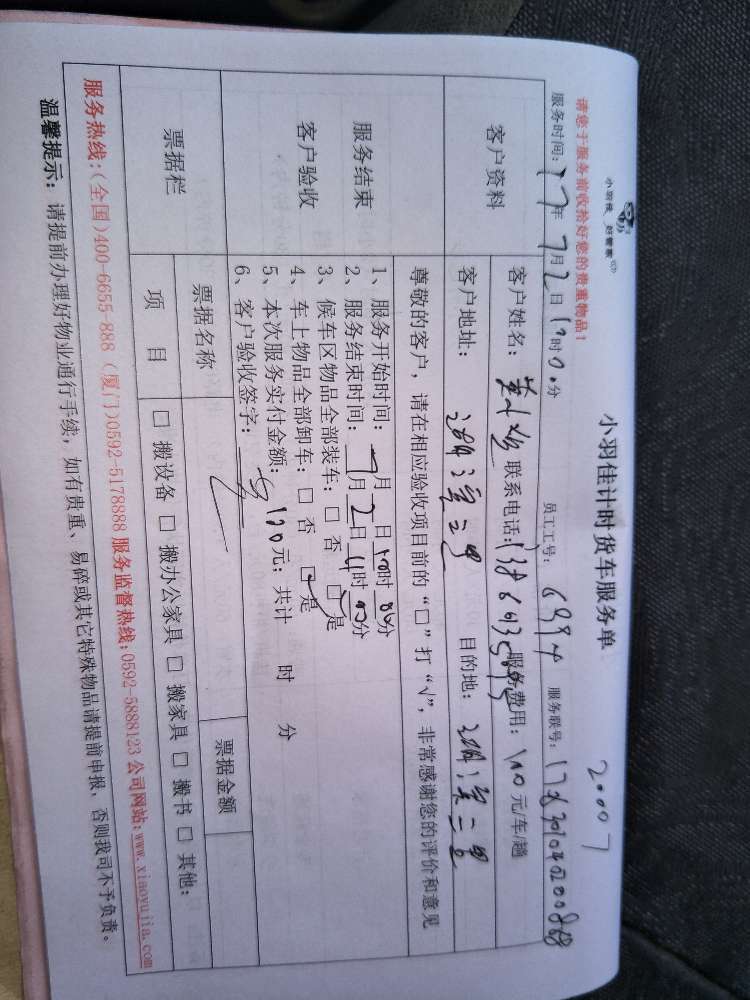 小羽佳 好管家
小羽佳计时货车服务单
20007
请您于服务前收拾好您的贵重物品!
服务时间:17年7月2日10时00分 员工工号:6994 服务联号:
客户资料
客户姓名: 联系电话: 服务费用: 元/车/趟
客户地址: 目的地:
尊敬的客户,请在相应验收项目前的“□”打“√”,非常感谢您的评价和意见
服务结束
客户验收
1、服务开始时间:7月 日10时00分
2、服务结束时间:7月2日11时00分
3、候车区物品全部装车:□否 □是
4、车上物品全部卸车:□否 □是
5、本次服务实付金额:120元;共计 时 分
6、客户验收签字:
票据栏
票据名称 票据金额
项目 □搬设备 □搬办公家具 □搬家具 □搬书 □其他:
服务热线:(全国)400-6655-888 (厦门)0592-5178888 服务监督热线:0592-5888123 公司网站:www.xiaoyujia.com
温馨提示:请提前办理好物业通行手续,如有贵重、易碎或其它特殊物品请提前申报,否则我司不予负责。